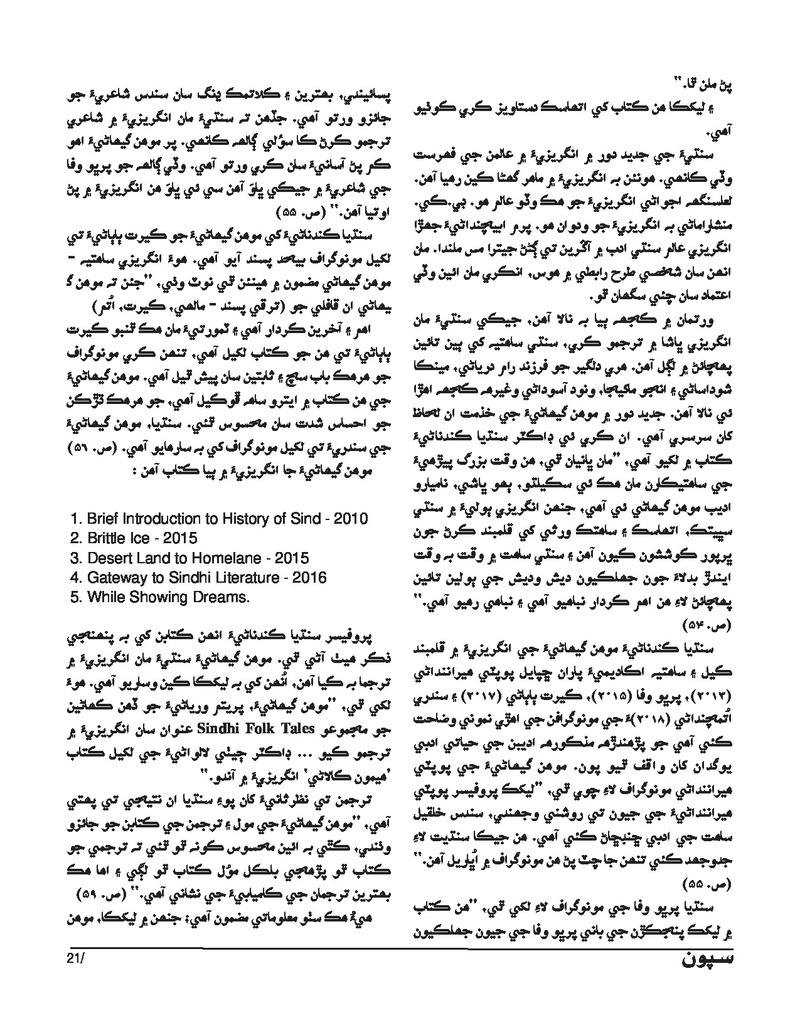 پڻ ملن ٿا.“
۽ ليکڪا هن ڪتاب کي اتهاسڪ دستاويز ڪري ڪوٺيو
آهي.
سنڌيءَ جي جديد دور ۾ انگريزيءَ ۾ عالمن جي فهرست
وڏي ڪانهي. هونئن به انگريزيءَ ۾ ماهر گهڻا ڪين رهيا آهن.
لعلسنگهه اجواڻي انگريزيءَ جو هڪ وڏو عالم هو. ٻي.ڪي.
منشاراماڻي به انگريزيءَ جو ودوان هو. پرم ابيچنداڻيءَ جهڙا
انگريزي عالم سنڌي ادب ۾ آڱرين تي ڳڻڻ جيترا مس ملندا. مان
انهن سان شخصي طرح رابطي ۾ هوس، انڪري مان ائين وڏي
اعتماد سان چئي سگهان ٿو.
ورتمان ۾ ڪجهه ٻيا به نالا آهن، جيڪي سنڌيءَ مان
انگريزي ڀاشا ۾ ترجمو ڪري، سنڌي ساهتيه کي ٻين تائين
پهچائڻ ۾ لڳل آهن. هري دلگير جو فرزند رام درياڻي، مينڪا
شوداساڻي ۽ انجو ماکيجا، ونود آسوداڻي وغيرهه ڪجهه اهڙا
ئي نالا آهن. جديد دور ۾ موهن گيهاڻيءَ جي خدمت ان لحاظ
کان سرسري آهي. ان ڪري ئي ڊاڪٽر سنڌيا ڪندناڻيءَ
ڪتاب ۾ لکيو آهي، ”مان ڀانيان ٿي، هن وقت بزرگ پيڙهيءَ
جي ساهتيڪارن مان هڪ ئي سڪيلڌو، ٻهو ڀاشي، ناميارو
اديب موهن گيهاڻي ئي آهي، جنهن انگريزي ٻوليءَ ۾ سنڌي
سڀيتڪ، اتهاسڪ ۽ ساهتڪ ورثي کي قلمبند ڪرڻ جون
ڀرپور ڪوششون ڪيون آهن ۽ سنڌي ساهت ۾ وقت به وقت
ايندڙ بدلاءَ جون جهلڪيون ديش وديش جي ٻولين تائين
پهچائڻ لاءِ هن اهم ڪردار نباهيو آهي ۽ نباهي رهيو آهي.“
(ص. ۵۴)
سنڌيا ڪندناڻيءَ موهن گيهاڻيءَ جي انگريزيءَ ۾ قلمبند
ڪيل ۽ ساهتيه اڪاديميءَ پاران ڇپايل پوپٽي هيراننداڻي
(۲۰۱۳)، پرڀو وفا (۲۰۱۵)، ڪيرت ٻاٻاڻي (۲۰۱۷) ۽ سندري
اُتمچنداڻي (۲۰۱۸)ءَ جي مونوگرافن جي اهڙي نموني وضاحت
ڪئي آهي جو پڙهندڙهه مذڪورهه اديبن جي حياتي ادبي
يوگدان کان واقف ٿيو پون. موهن گيهاڻيءَ جي پوپٽي
هيراننداڻي مونوگراف لاءِ چوي ٿي، ”ليکڪ پروفيسر پوپٽي
هيراننداڻيءَ جي جيون تي روشني وجهندي، سندس خلقيل
ساهت جي ادبي ڇنڊڇاڻ ڪئي آهي. هن جيڪا سنڌيت لاءِ
جدوجهد ڪئي تنهن جا چٽ پڻ هن مونوگراف ۾ اُڀاريل آهن.“
(ص. ۵۵)
سنڌيا پرڀو وفا جي مونوگراف لاءِ لکي ٿي، ”هن ڪتاب
۾ ليکڪ پنجڪڙن جي باني پرڀو وفا جي جيون جهلڪيون
پسائيندي، بهترين ۽ ڪلاتمڪ ڍنگ سان سندس شاعريءَ جو
جائزو ورتو آهي. جڏهن ته سنڌيءَ مان انگريزيءَ ۾ شاعري
ترجمو ڪرڻ ڪا سؤلي ڳالهه ڪانهي. پر موهن گيهاڻيءَ اهو
ڪم پڻ آسانيءَ سان ڪري ورتو آهي. وڏي ڳالهه جو پرڀو وفا
جي شاعريءَ ۾ جيڪي ڀاوَ آهن سي ئي ڀاوَ هن انگريزيءَ ۾ پڻ
اوتيا آهن.“ (ص. ۵۵)
سنڌيا ڪندناڻيءَ کي موهن گيهاڻيءَ جو ڪيرت ٻاٻاڻيءَ تي
لکيل مونوگراف بيحد پسند آيو آهي. هوءَ انگريزي ساهتيه –
موهن گيهاڻي مضمون ۾ هيئنئن ٿي نوٽ وٺي، ”جئن ته موهن گ
يهاڻي ان قافلي جو (ترقي پسند – مالهي، ڪيرت، اُتم)
اهم ۽ آخرين ڪردار آهي ۽ ٽمورتيءَ مان هڪ ٿنڀو ڪيرت
ٻاٻاڻيءَ تي هن جو ڪتاب لکيل آهي، تنهن ڪري مونوگراف
جو هرهڪ باب سچ ۽ ثابتين سان پيش ٿيل آهي. موهن گيهاڻيءَ
جي هن ڪتاب ۾ ايترو ساهه ڦوڪيل آهي، جو هرهڪ ڌڙڪن
جو احساس شدت سان محسوس ٿئي. سنڌيا، موهن گيهاڻيءَ
جي سندريءَ تي لکيل مونوگراف کي به سارهايو آهي. (ص. ۵۶)
موهن گيهاڻيءَ جا انگريزيءَ ۾ ٻيا ڪتاب آهن :
1. Brief Introduction to History of Sind - 2010
2. Brittle Ice - 2015
3. Desert Land to Homelane - 2015
4. Gateway to Sindhi Literature - 2016
5. While Showing Dreams.
پروفيسر سنڌيا ڪندناڻيءَ انهن ڪتابن کي به پنهنجي
ذڪر هيٺ آڻي ٿي. موهن گيهاڻيءَ سنڌيءَ مان انگريزيءَ ۾
ترجما به ڪيا آهن، اُنهن کي به ليکڪا ڪين وساريو آهي. هوءَ
لکي ٿي، ”موهن گيهاڻي، پريتم ورياڻيءَ جو ڏهن ڪهاڻين
جو مجموعو Sindhi Folk Tales عنوان سان انگريزيءَ ۾
ترجمو ڪيو ... ڊاڪٽر جيٺي لالواڻيءَ جي لکيل ڪتاب
’هيمون ڪالاڻي‘ انگريزيءَ ۾ آندو.“
ترجمن تي نظرثانيءَ کان پوءِ سنڌيا ان نتيجي تي پهتي
آهي، ”موهن گيهاڻيءَ جي مول ۽ ترجمن جي ڪتابن جو جائزو
وٺندي، ڪٿي به ائين محسوس ڪونه ٿو ٿئي ته ترجمي جو
ڪتاب ٿو پڙهجي بلڪل موُل ڪتاب ٿو لڳي ۽ اها هڪ
بهترين ترجمان جي ڪاميابيءَ جي نشاني آهي.“ (ص. ۵۹)
هيءُ هڪ سٺو معلوماتي مضمون آهي؛ جنهن ۾ ليکڪا، موهن
سپون
21/